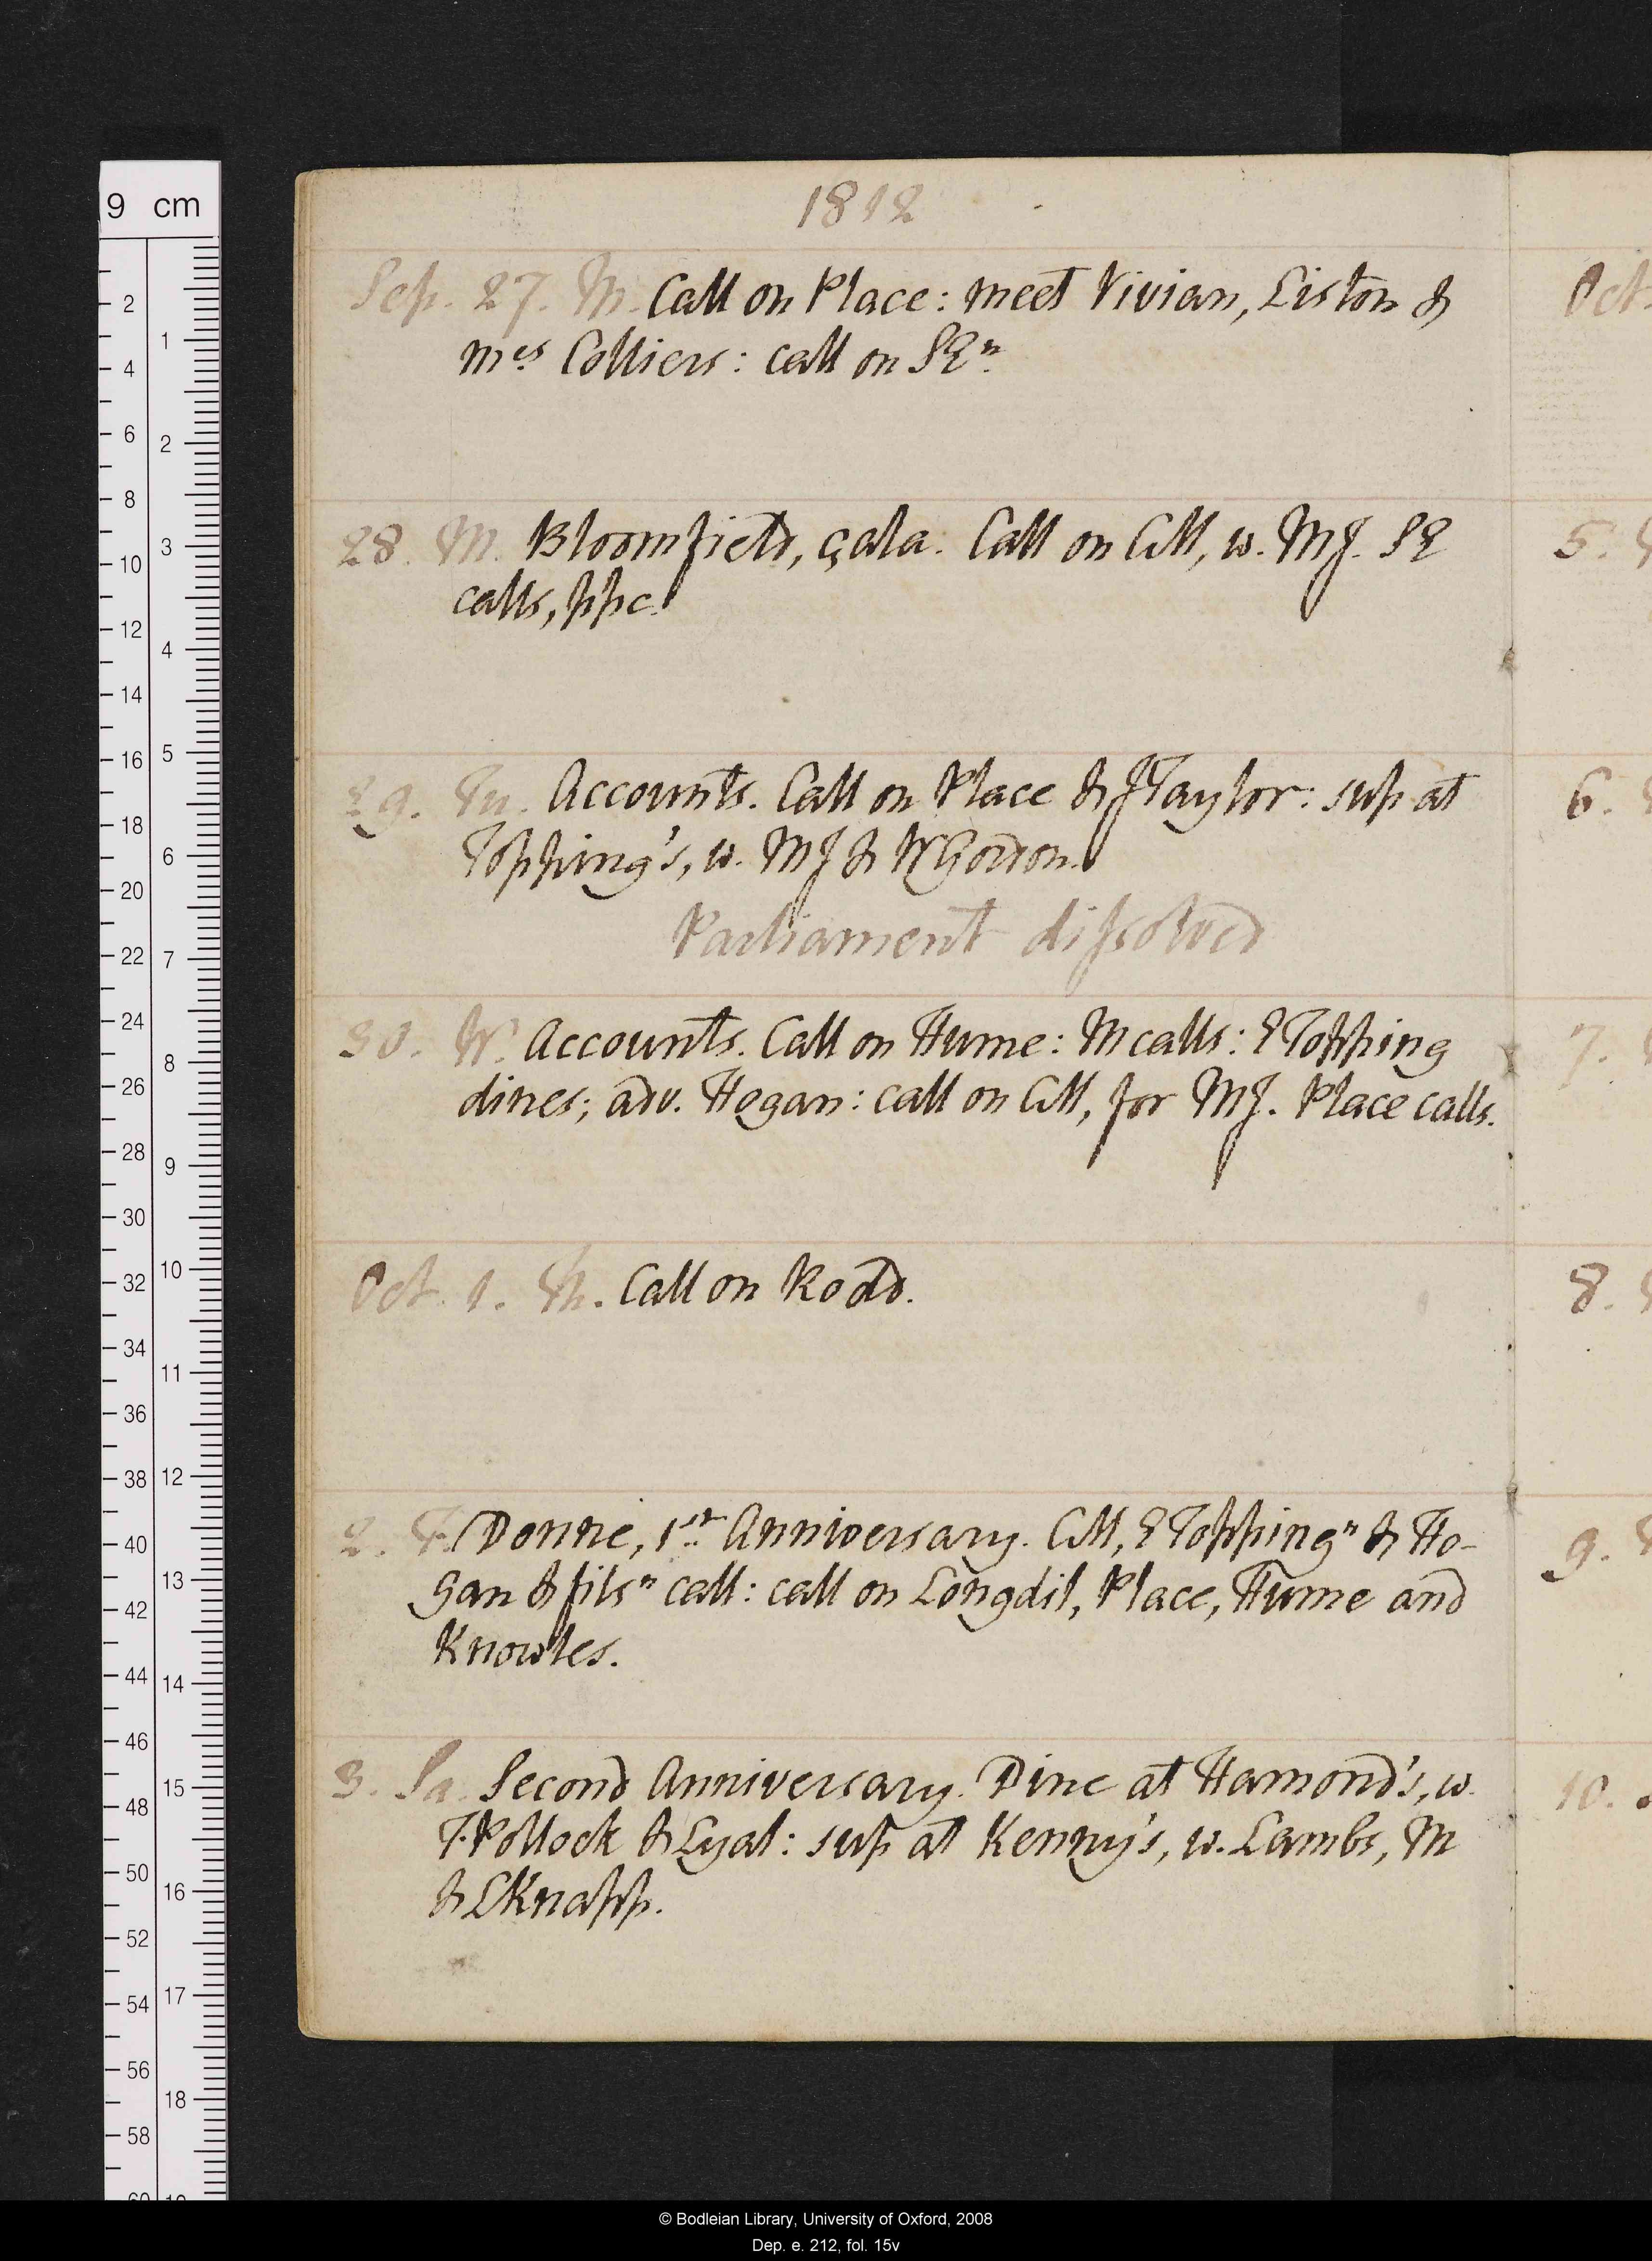 1812
Sep. 27. M. Call on Place: meet Vivian, Liston &
mes Colliers: call on SEn.
28. M. Bloomfield, çala. Call on CM, w. MJ. SE
calls, ppc.
29. Tu. Accounts. Call on Place & JTaylor: sup at
Topping's, w. MJ & WGordon.
Parliament dissolved
30. W. Accounts. Call on Hume: M calls: ETopping
dines; adv. Hogan: call on CM, for MJ. Place calls.
Oct. 1. Th. Call on Rodd.
2. F. Donne, 1st Anniversary. CM, ETopping n & Ho-
gan & fils n call: call on Longdil, Place, Hume and
Knowles.
3. Sa. Second Anniversary. Dine at Hamond's, w.
F. Pollock & Lyal: sup at Kenny's, w. Lambs, M
& LKnapp.
Oct.
5.
6.
7.
8.
9.
10.
9 cm
2
4
6
8
10
12
14
16
18
20
22
24
26
28
30
32
34
36
38
40
42
44
46
48
50
52
54
56
58
1
2
3
4
5
6
7
8
9
10
11
12
13
14
15
16
17
18
© Bodleian Library, University of Oxford, 2008
Dep. e. 212, fol. 15v